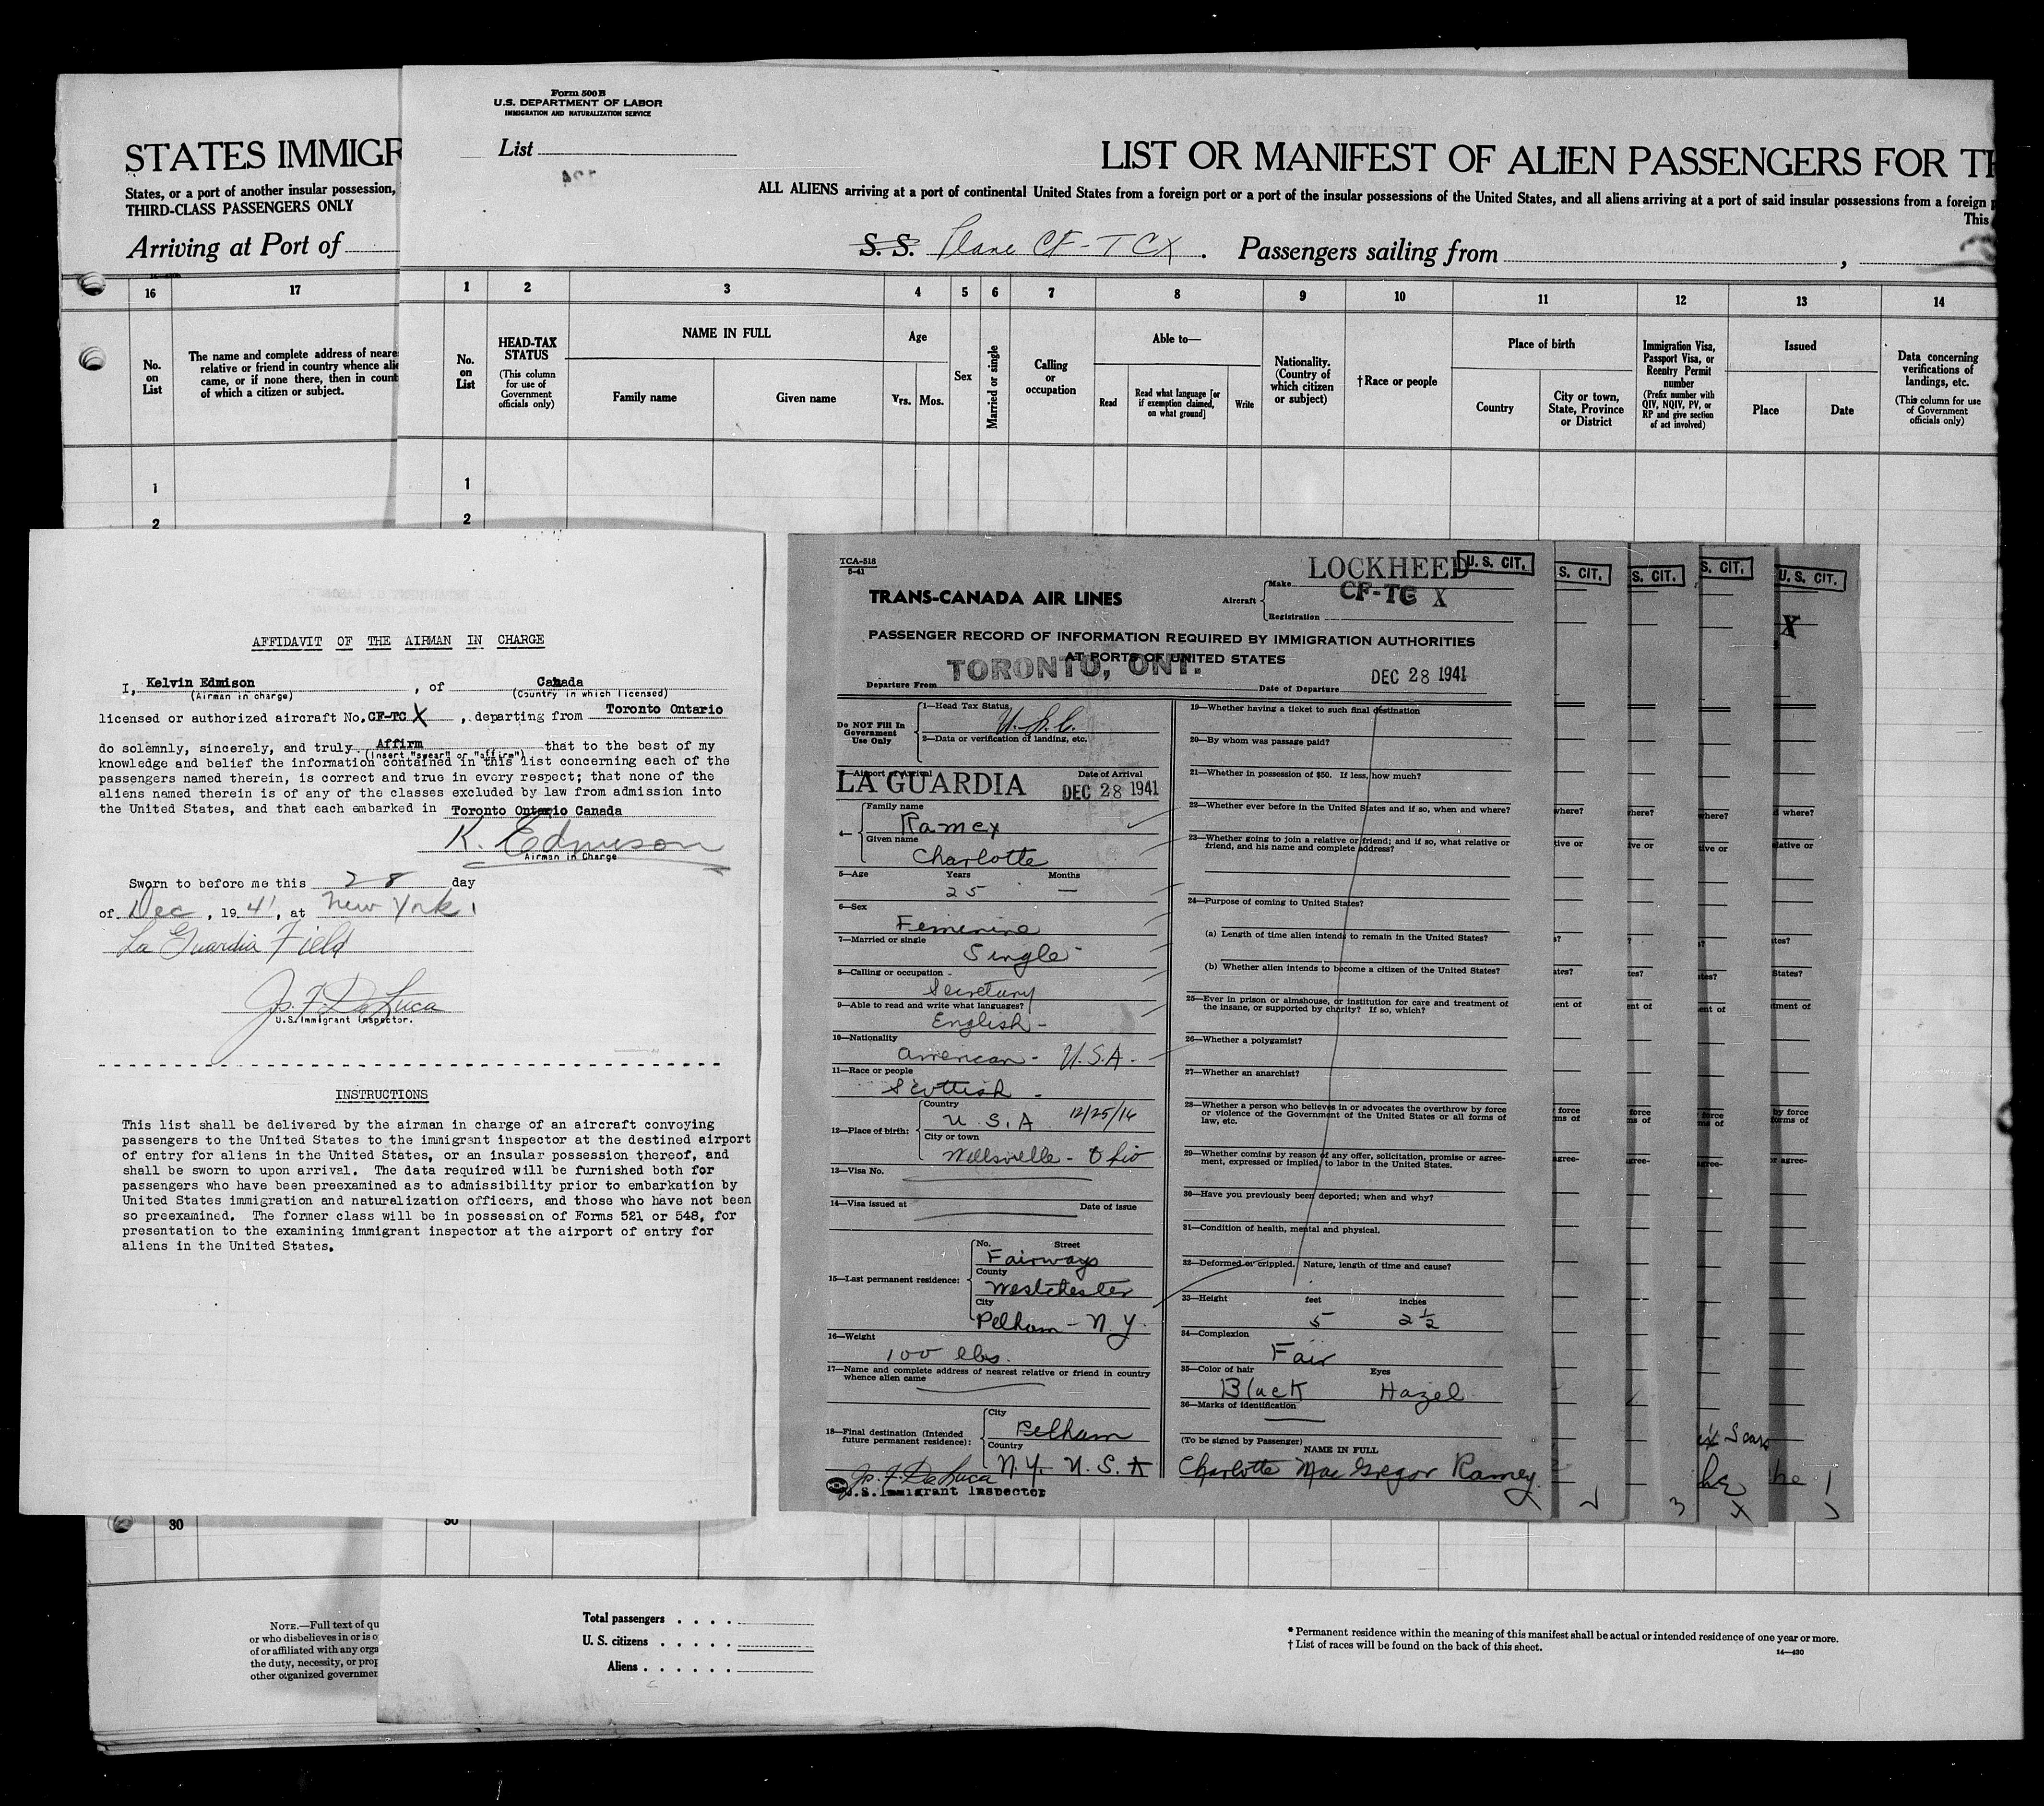 STATES IMMIGR
States, or a port of another insular possession,
THIRD-CLASS PASSENGERS ONLY
Arriving at Port of
16
17
No. on List
The name and complete address of neare
relative or friend in country whence alie
came, or if none there, then in count
of which a citizen or subject.
1
2
30
NOTE.—Full text of qu
or who disbelieves in or is o
of or affiliated with any orga
the duty, necessity, or prop
other organized governmen
Form 500 B
U.S. DEPARTMENT OF LABOR
IMMIGRATION AND NATURALIZATION SERVICE
List
LIST OR MANIFEST OF ALIEN PASSENGERS FOR TH
ALL ALIENS arriving at a port of continental United States from a foreign port or a port of the insular possessions of the United States, and all aliens arriving at a port of said insular possessions from a foreign p
This
S. S. Plane CF-TCX. Passengers sailing from ,
1 2 3 4 5 6 7 8 9 10 11 12 13 14
No. on List
HEAD-TAX STATUS
(This column for use of Government officials only)
NAME IN FULL
Family name
Given name
Age
Yrs. Mos.
Sex
Married or single
Calling or occupation
Able to—
Read
Read what language [or if exemption claimed, on what ground]
Write
Nationality. (Country of which citizen or subject)
†Race or people
Place of birth
Country
City or town, State, Province or District
Immigration Visa, Passport Visa, or Reentry Permit number
(Prefix number with QIV, NQIV, PV, or RP and give section of act involved)
Issued
Place
Date
Data concerning verifications of landings, etc.
(This column for use of Government officials only)
1
2
30
Total passengers
U. S. citizens
Aliens
* Permanent residence within the meaning of this manifest shall be actual or intended residence of one year or more.
† List of races will be found on the back of this sheet.
14—430
AFFIDAVIT OF THE AIRMAN IN CHARGE
I, Kelvin Edmison, of Canada
(Airman in charge) (Country in which licensed)
licensed or authorized aircraft No. CF-TC X, departing from Toronto Ontario
do solemnly, sincerely, and truly Affirm that to the best of my
(insert "swear" or "affirm")
knowledge and belief the information contained in this list concerning each of the
passengers named therein, is correct and true in every respect; that none of the
aliens named therein is of any of the classes excluded by law from admission into
the United States, and that each embarked in Toronto Ontario Canada
K. Edmison
Airman in Charge
Sworn to before me this 28 day
of Dec, 1941, at New York,
La Guardia Field
Js. F. DeLuca
U.S. Immigrant Inspector.
INSTRUCTIONS
This list shall be delivered by the airman in charge of an aircraft conveying
passengers to the United States to the immigrant inspector at the destined airport
of entry for aliens in the United States, or an insular possession thereof, and
shall be sworn to upon arrival. The data required will be furnished both for
passengers who have been preexamined as to admissibility prior to embarkation by
United States immigration and naturalization officers, and those who have not been
so preexamined. The former class will be in possession of Forms 521 or 548, for
presentation to the examining immigrant inspector at the airport of entry for
aliens in the United States.
TCA-518
5-41
TRANS-CANADA AIR LINES
Aircraft
Make LOCKHEED
Registration CF-TC X
U. S. CIT.
PASSENGER RECORD OF INFORMATION REQUIRED BY IMMIGRATION AUTHORITIES
AT PORTS OF UNITED STATES
Departure From TORONTO, ONT.
Date of Departure DEC 28 1941
Do NOT Fill In Government Use Only
1—Head Tax Status U.S.C.
2—Data or verification of landing, etc.
3—Airport of Arrival LA GUARDIA
Date of Arrival DEC 28 1941
4— Family name Ramey
Given name Charlotte
5—Age Years 25 Months —
6—Sex Feminine
7—Married or single Single
8—Calling or occupation Secretary
9—Able to read and write what languages? English
10—Nationality American - U.S.A.
11—Race or people Scottish
12—Place of birth: Country U.S.A 12/25/16
City or town Wellsville - Ohio
13—Visa No.
14—Visa issued at Date of issue
15—Last permanent residence: No. Street Fairways
County Westchester
City Pelham - N.Y.
16—Weight 100 lbs.
17—Name and complete address of nearest relative or friend in country
whence alien came
18—Final destination (Intended future permanent residence): City Pelham
Country N.Y. U.S.A
Js. F. DeLuca
U.S. Immigrant Inspector
19—Whether having a ticket to such final destination
20—By whom was passage paid?
21—Whether in possession of $50. If less, how much?
22—Whether ever before in the United States and if so, when and where?
23—Whether going to join a relative or friend; and if so, what relative or
friend, and his name and complete address?
24—Purpose of coming to United States?
(a) Length of time alien intends to remain in the United States?
(b) Whether alien intends to become a citizen of the United States?
25—Ever in prison or almshouse, or institution for care and treatment of
the insane, or supported by charity? If so, which?
26—Whether a polygamist?
27—Whether an anarchist?
28—Whether a person who believes in or advocates the overthrow by force
or violence of the Government of the United States or all forms of
law, etc.
29—Whether coming by reason of any offer, solicitation, promise or agree-
ment, expressed or implied, to labor in the United States.
30—Have you previously been deported; when and why?
31—Condition of health, mental and physical.
32—Deformed or crippled. Nature, length of time and cause?
33—Height feet 5 inches 2 1/2
34—Complexion Fair
35—Color of hair Black Eyes Hazel
36—Marks of identification
(To be signed by Passenger)
NAME IN FULL
Charlotte MacGregor Ramey
S. CIT.
S. CIT.
S. CIT.
U. S. CIT.
X